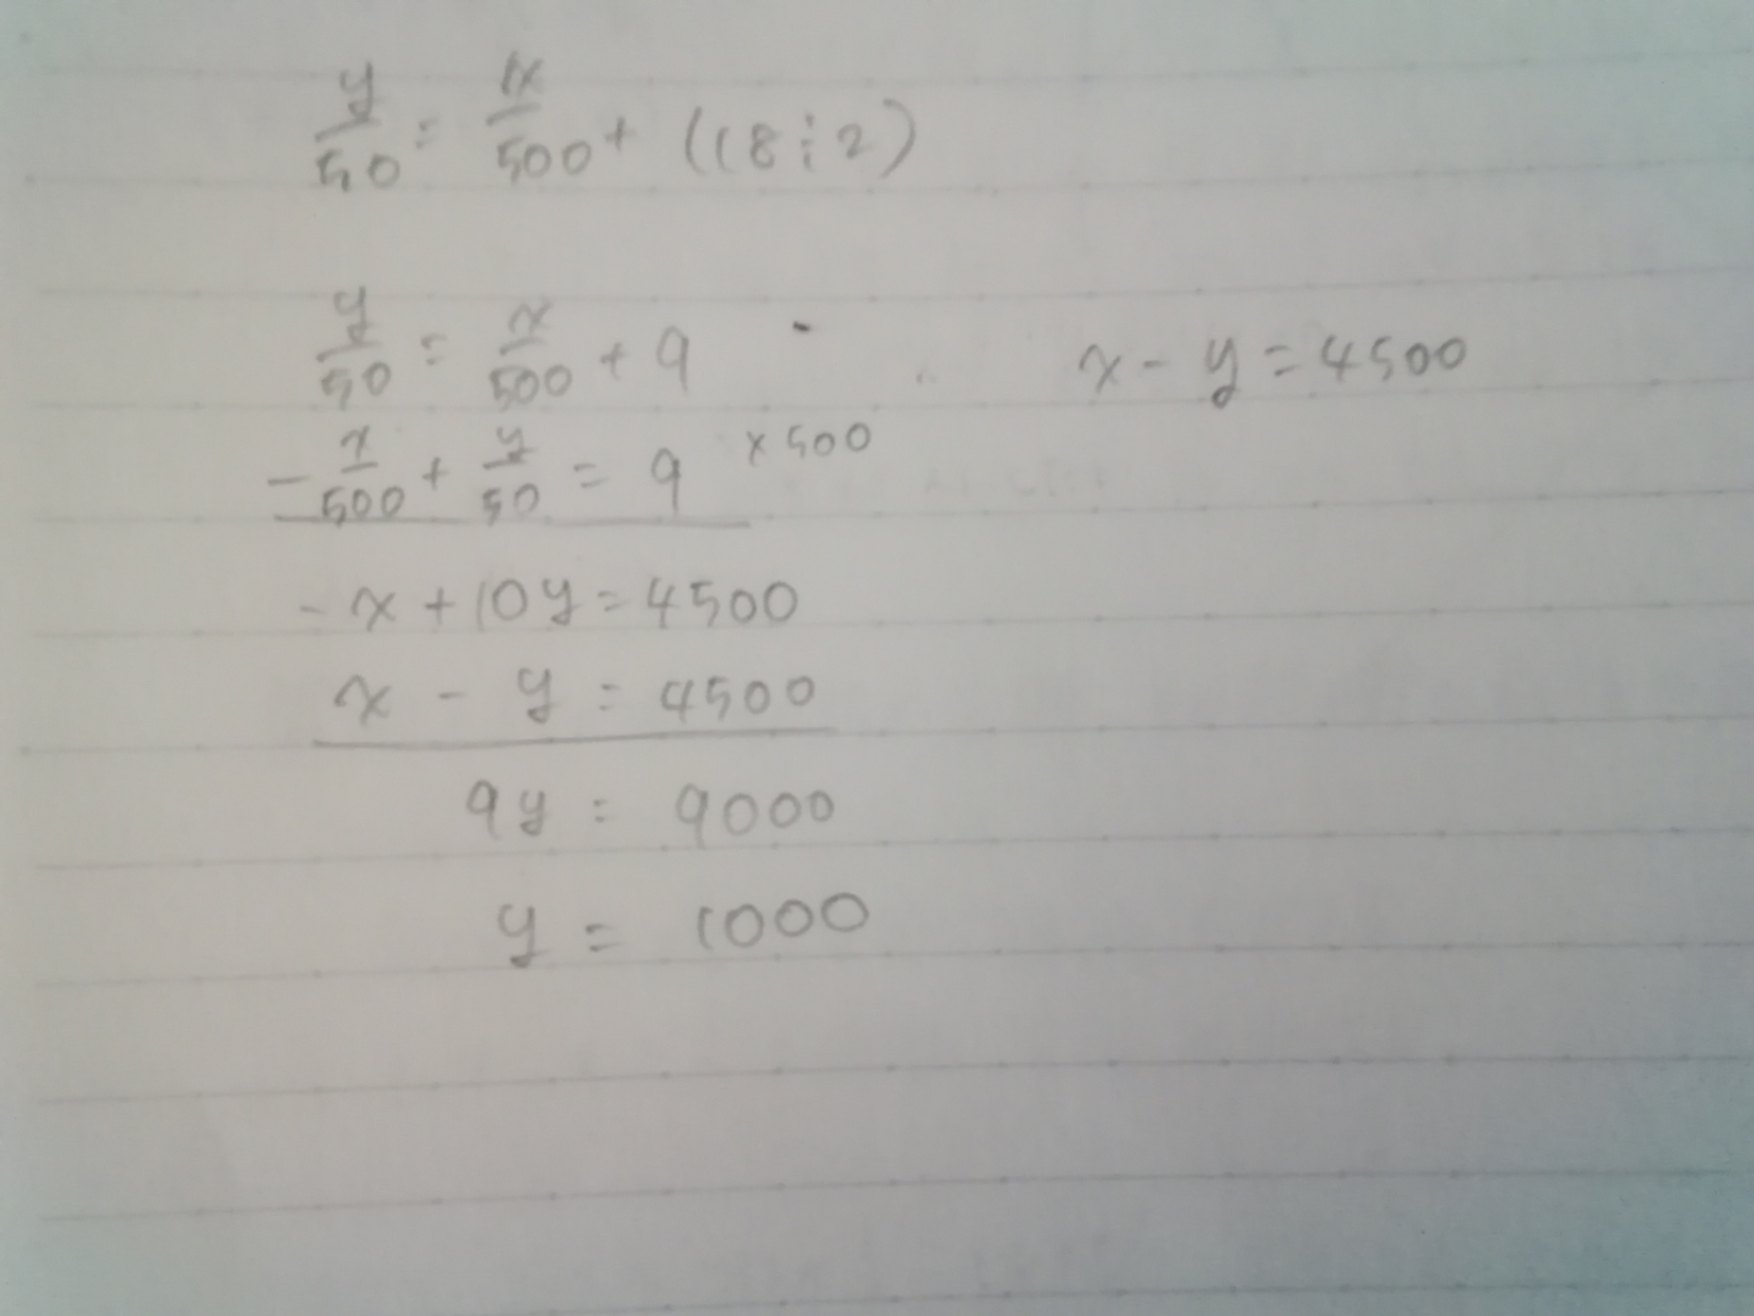 y/50 = x/500 + (18 : 2)
y/50 = x/500 + 9
x - y = 4500
- x/500 + y/50 = 9 x 500
- x + 10y = 4500
x - y = 4500
9y = 9000
y = 1000